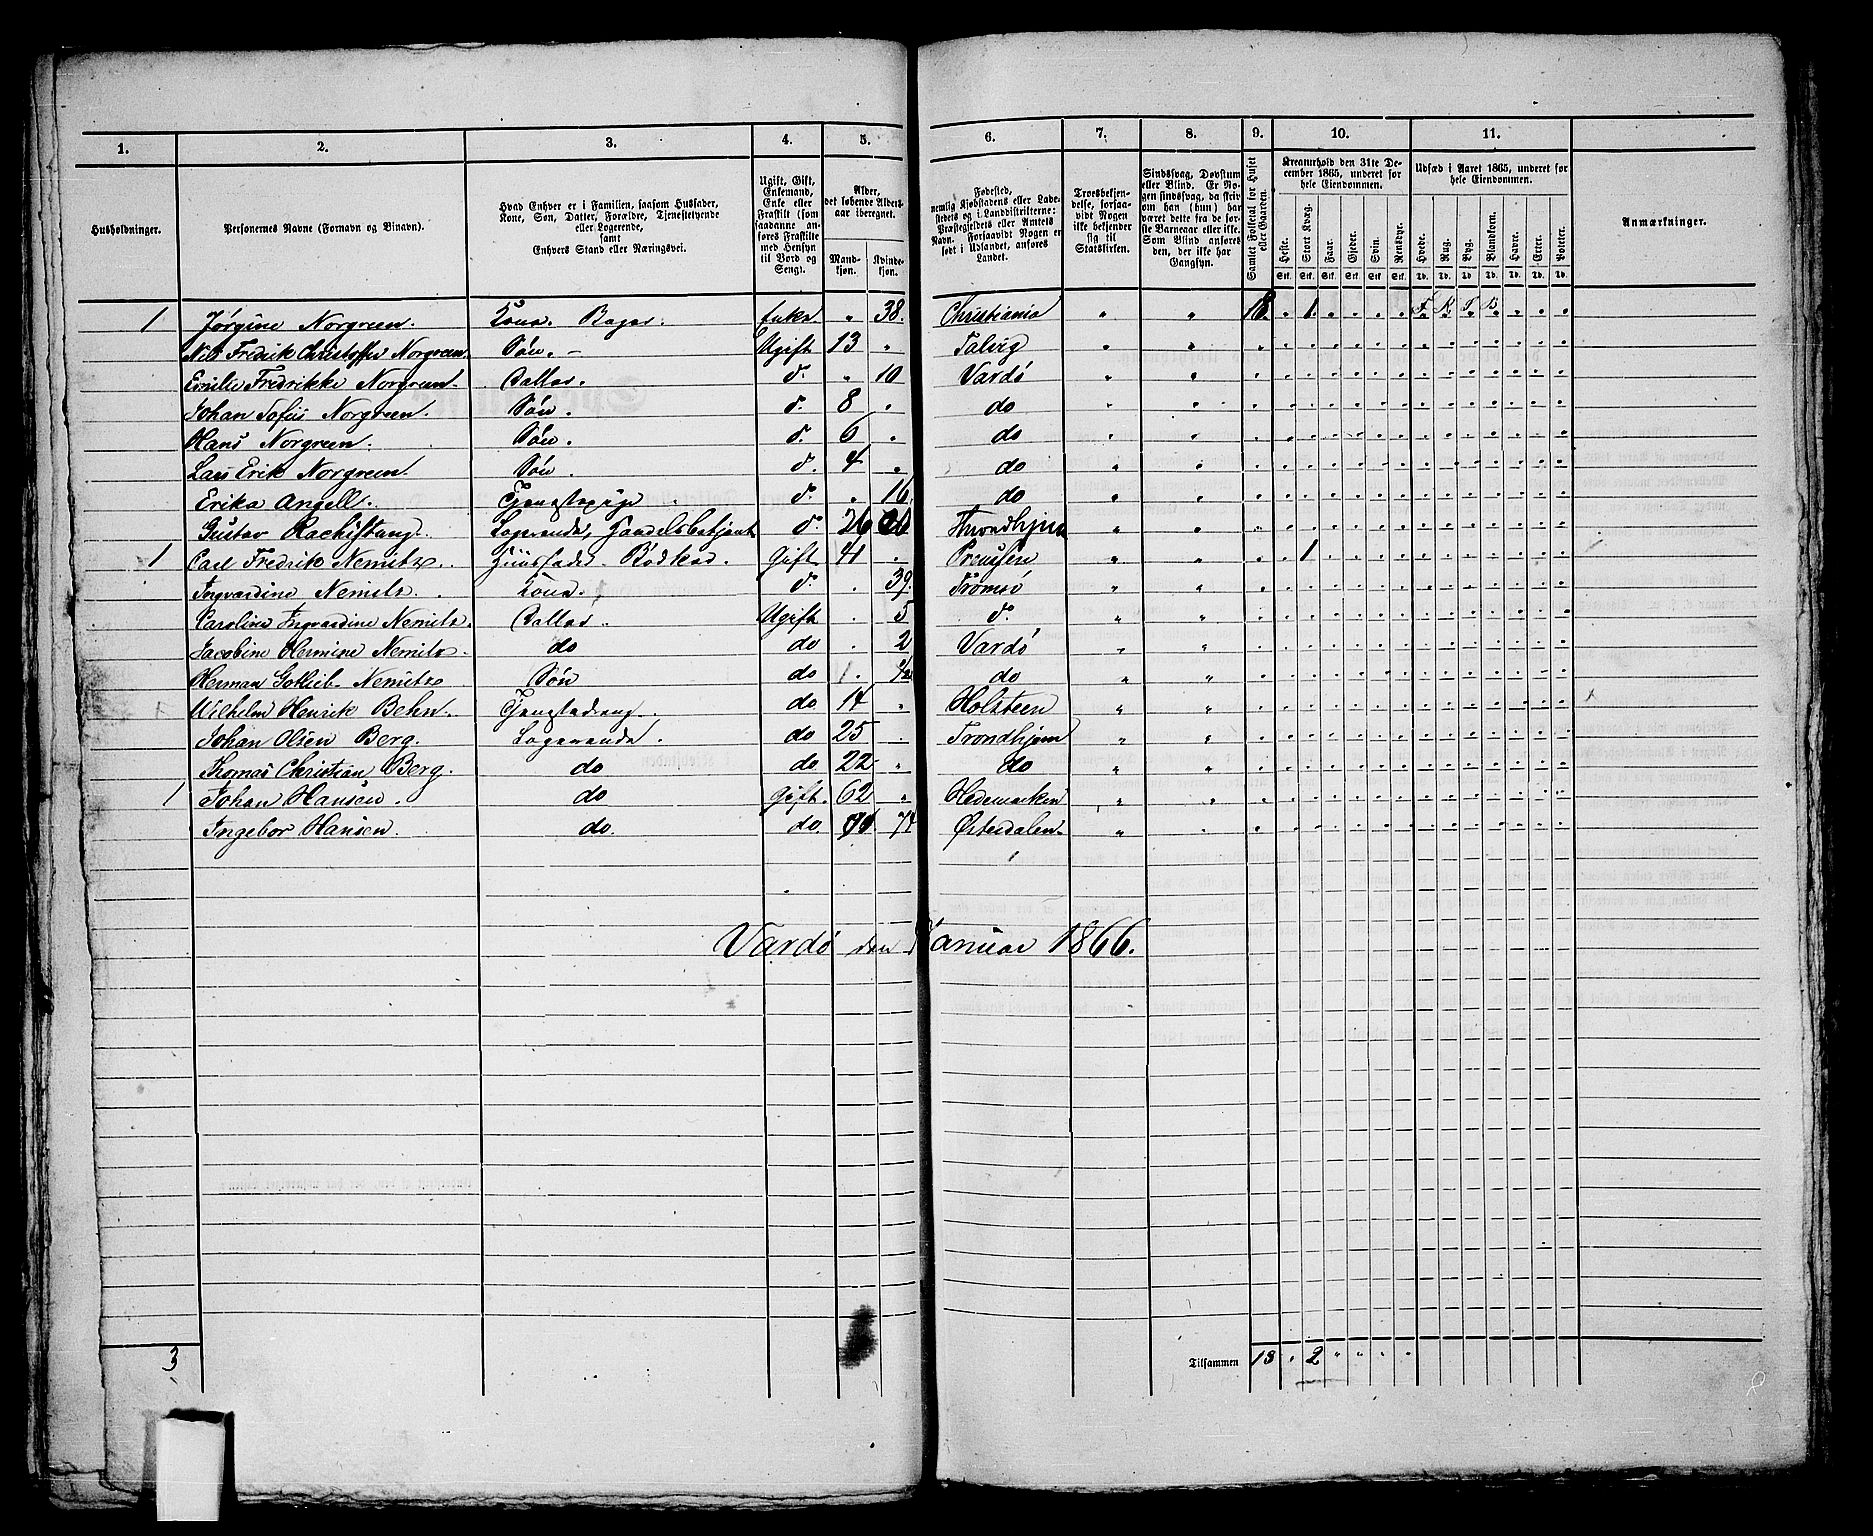 1. 2. 3. 4. 5. 6. 7. 8. 9. 10. 11.
Husholdninger.
Personernes Navne (Fornavn og Binavn).
Hvad Enhver er i Familien, saasom Husfader, Kone, Søn, Datter, Forældre, Tjenestetyende eller Logerende, samt Enhvers Stand eller Næringsvei.
Ugift, Gift, Enkemand, Enke eller Fraskilt (som saadanne anføres Fraskilte med Hensyn til Bord og Seng).
Alder, det løbende Alders-aar iberegnet.
Mand-kjøn. Kvinde-kjøn.
Fødested, nemlig Kjøbstadens eller Ladestedets og i Landdistrikterne: Præstegjeldets eller Amtets Navn. Forsaavidt Nogen er født i Udlandet, anføres Landet.
Troesbekjendelse, forsaavidt Nogen ikke bekjender sig til Statskirken.
Sindssvag, Døvstum eller Blind. Er Nogen sindssvag, da skrives om han (hun) har været dette fra de første Barneaar eller ikke. Som Blind anføres den, der ikke har Gangsyn.
Samlet Folketal for Huset eller Gaarden.
Kreaturhold den 31te December 1865, underet for hele Eiendommen.
Heste. Stort Kvæg. Faar. Gjeder. Svin. Rensdyr.
Stk. Stk. Stk. Stk. Stk. Stk.
Udsæd i Aaret 1865, underet for hele Eiendommen.
Hvede. Rug. Byg. Blandkorn. Havre. Erter. Poteter.
Td. Td. Td. Td. Td. Td. Td.
Anmærkninger.
1 Jørgine Norgreen. Kone. Bager. Enke. " 38. Christiania " " 18. " 1
Nils Fredrik Christoffer Norgreen Søn. Ugift 13 " Talvig
Emilie Fredrikke Norgreen. Datter. d. " 10 Vardø
Johan Sofus Norgreen. Søn. d. 8 " do
Hans Norgreen. Søn. d. 6 " do
Lars Erik Norgreen. Søn. d. 4 " do
Erika Angell. Tjenstepige d. " 16 do
Gustav Logerende, Handelsbetjent d. 26 Throndhjem
1 Carl Fredrik Nemitz. Huusfader. Bødker. Gift 41 " Preussen " " " " 1
Ingvardine Nemitz. Kone. d. " 39. Tromsø
Caroline Ingvardine Nemitz. Datter. Ugift " 5 d.
Jacobine Hermine Nemitz. do do " 2 Vardø
Herman Gotlieb Nemitz Søn do do
Wilhelm Henrik Behn. Tjenstedreng. do 14 " Holsteen
Johan Olsen Berg. Logerende. do 25 " Trondhjem
Thomas Christian Berg. do do 22 " do
1 Johan Hansen. do Gift. 62 " Hedemarken
Ingebor Hansen. do do 74 Østerdalen
Vardø den Januar 1866.
3 Tilsammen 18 " 2 " " " "